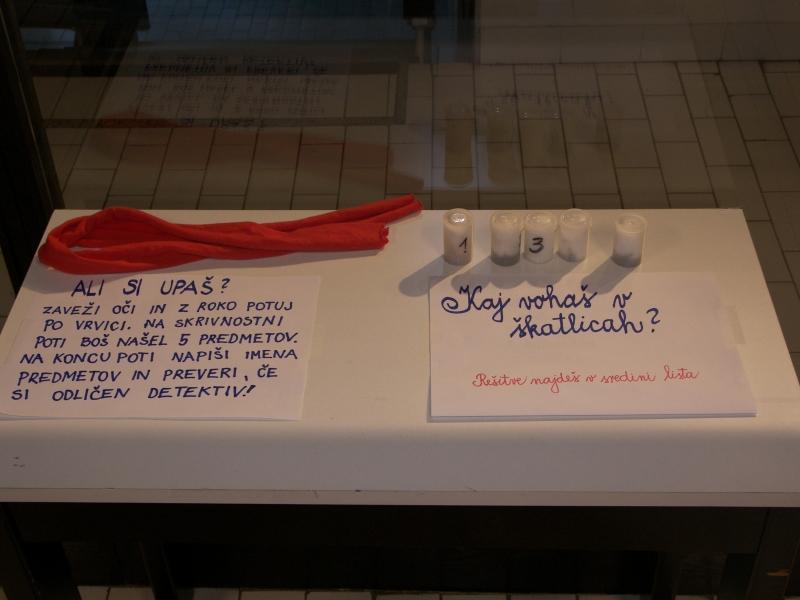 ALI SI UPAŠ?
ZAVEŽI OČI IN Z ROKO POTUJ
PO VRVICI. NA SKRIVNOSTNI
POTI BOŠ NAŠEL 5 PREDMETOV.
NA KONCU POTI NAPIŠI IMENA
PREDMETOV IN PREVERI, ČE
SI ODLIČEN DETEKTIV!
1
3
Kaj vohaš v
škatlicah?
Rešitve najdeš v sredini lista